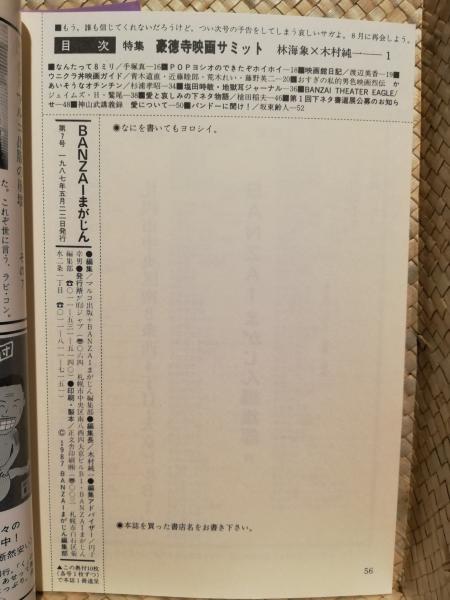 ■もう、誰も信じてくれないだろうけど、つい次号の予告をしてしまう哀しいサガよ。8月に再会しよう。
目次 特集 豪徳寺映画サミット 林海象×木村純一——1
■なんたって8ミリ／手塚真—16■POPヨシオのできたぞホイホイ—18■映画館日記／渡辺美香—19■
ウニクラ丼映画ガイド／青木道直・近藤睦郎・荒木れい・藤野英二—20■おすぎの私的男色映画烈伝 か
あいそうなオチンチン／杉浦孝昭—34■塩田時敏・地獄耳ジャーナル—36■BANZAI THEATER EAGLE／
ジェイムズ・H・鷲尾—38■愛と哀しみの下ネタ物語／植田稲夫—46■第1回下ネタ番選展公募のお知ら
せ—48■神山武講義録 愛について—50■バンドーに聞け！／坂東齢人—52
BANZAIまがじん
第7号 一九八七年五月二二日発行
●編集／マルコ出版＋BANZAIまがじん編集部●編集長／木村純一●編集アドバイザー／円子
幸男●発行所
札幌市中央区南八西四
BANZAIまがじん
編集部
●印刷・製本／正文舎印刷㈱
札幌市白石区菊
水二条一丁目
©1987 BANZAIまがじん編集部
▲この奥付10枚
（各号1枚ずつ）
で本誌1冊進呈
●なにを書いてもヨロシイ。
●本誌を買った書店名をお書き下さい。
56
た。これぞ世に言う、ラビ・コン。